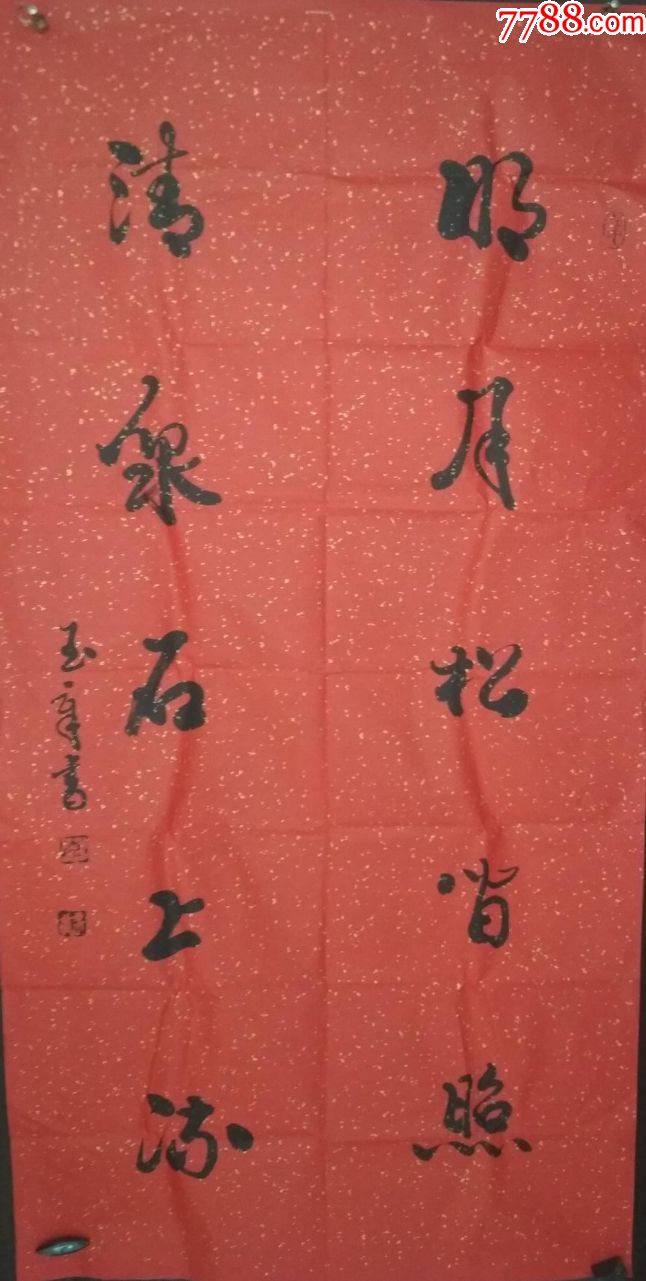 7788.com
明月松间照
清泉石上流
玉 書